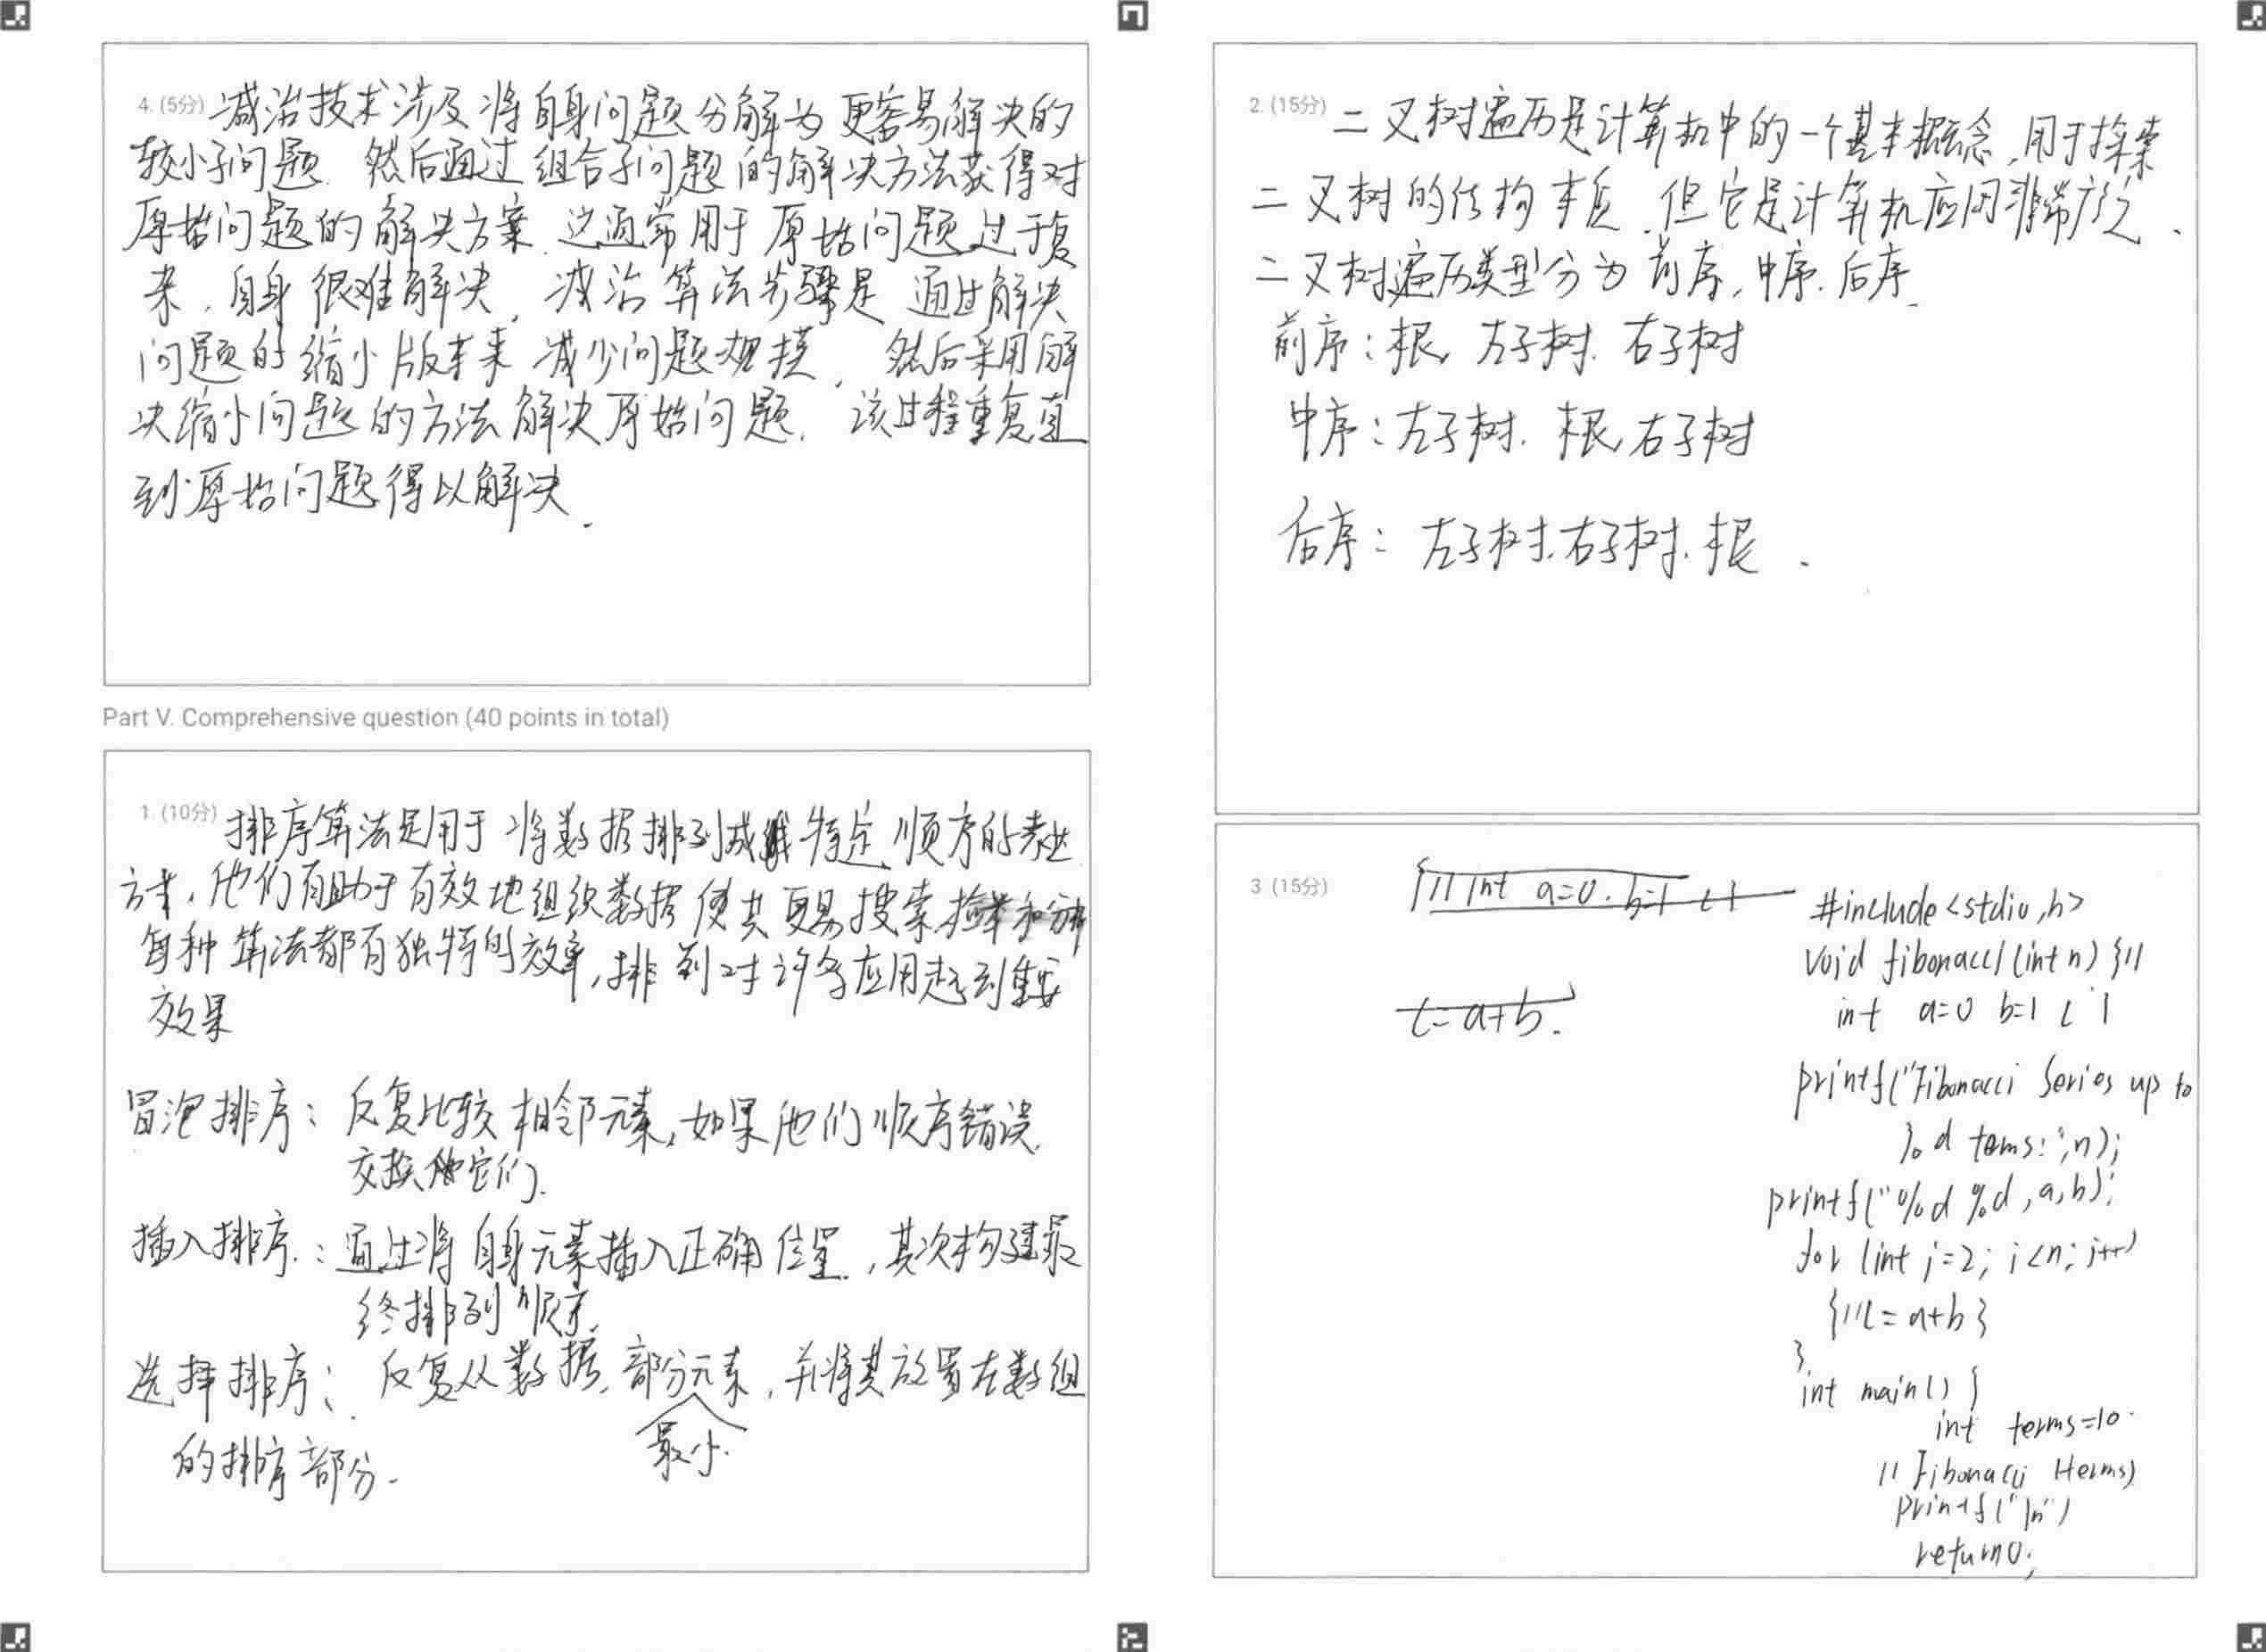 4. (5分) 减治技术涉及将自身问题分解为更容易解决的
较小子问题. 然后通过组合子问题的解决方法获得对
原始问题的解决方案. 这通常用于原始问题过于复
杂, 自身很难解决. 减治算法步骤是 通过解决
问题的缩小版本来减少问题规模, 然后采用解
决缩小问题的方法解决原始问题. 该过程重复直
到原始问题得以解决.
Part V. Comprehensive question (40 points in total)
1. (10分) 排序算法是用于将数据排列成特定顺序的
方式, 他们有助于有效地组织数据使其更易搜索,
每种算法都有独特的效率, 排列对许多应用起到重要
效果
冒泡排序: 反复比较相邻元素, 如果他们顺序错误
交换它们.
插入排序: 通过将自身元素插入正确位置, 其次构建最
终排列顺序.
选择排序: 反复从数据, 部分元素, 并将其放置在数组
最小.
的排序部分.
2. (15分) 二叉树遍历是计算机中的一个基本概念, 用于探索
二叉树的结构 但它是计算机应用非常广泛.
二叉树遍历类型分为 前序, 中序. 后序.
前序: 根, 左子树. 右子树
中序: 左子树. 根, 右子树
后序: 左子树. 右子树. 根.
3 (15分) {// int a=0. b=1
t=a+b.
#include<stdio,h>
void fibonacci(int n) {//
int a=0 b=1
printf("Fibonacci Series up to
%d tems:",n);
printf("%d %d,a,b);
for (int i=2; i<n; i++)
{//t=a+b}
}
int main() {
int terms=10.
// Fibonacci Herms)
printf("\n")
return0;